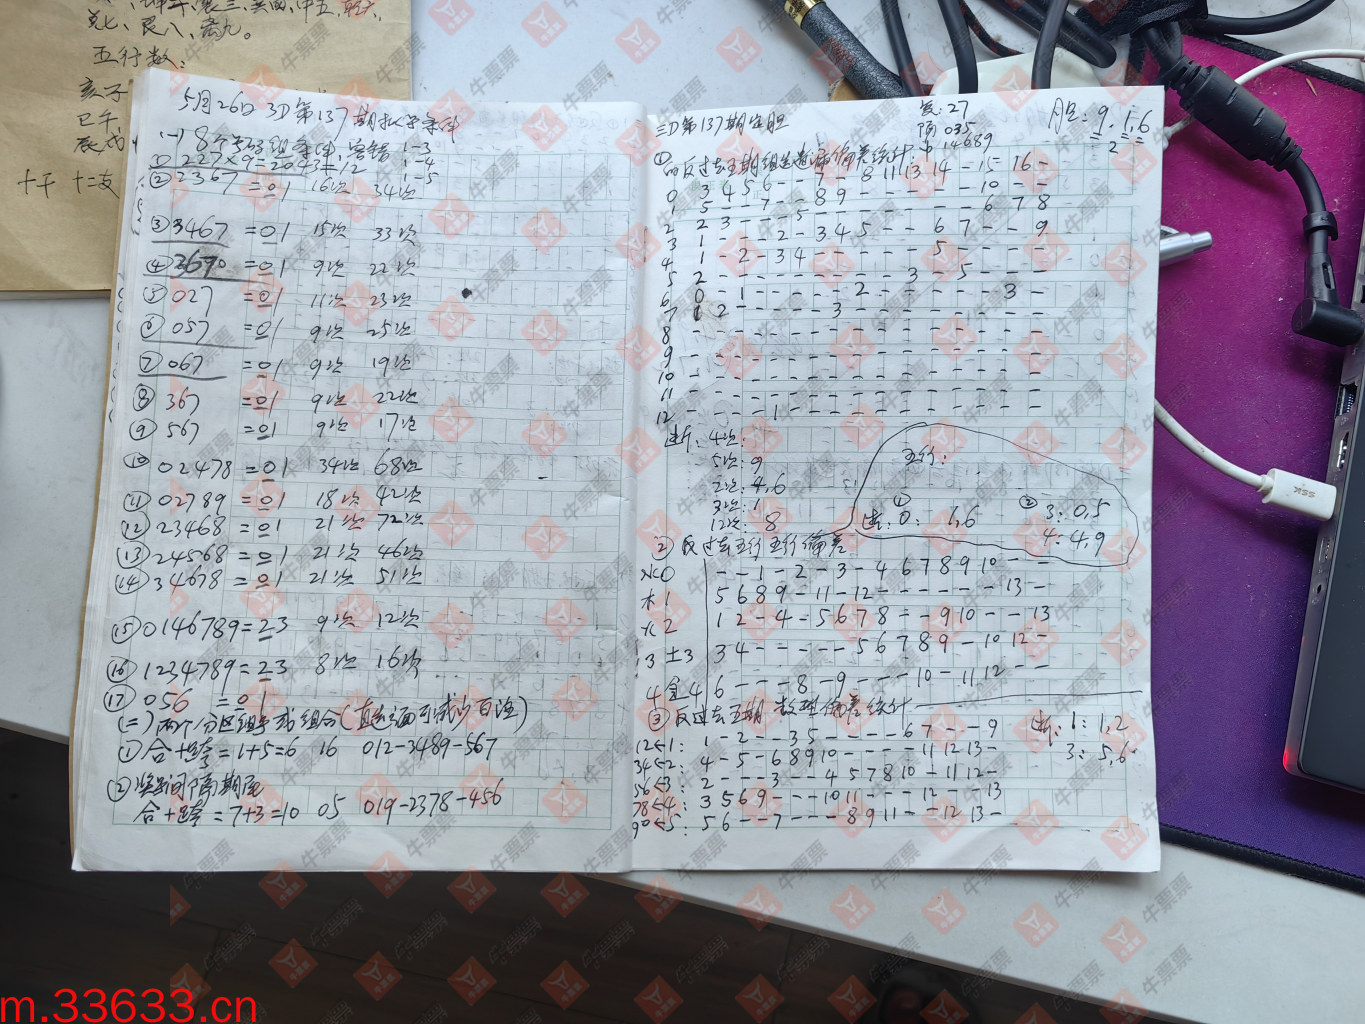 兑七、艮八、离九。
五行数:
亥子
巳午
辰戌
十干 十二支
5月26日 3D第137期拟定条件
(一) 8个号码组条件,容错 1-3
① 227×9=2043=12 1-4
② 2367 =01 16次 34次 1-5
③ 3467 =01 15次 33次
④ 3670 =01 9次 22次
⑤ 027 =01 11次 23次
⑥ 057 =01 9次 25次
⑦ 067 =01 9次 19次
⑧ 367 =01 9次 22次
⑨ 567 =01 9次 17次
⑩ 02478 =01 34次 68次
⑪ 02789 =01 18次 42次
⑫ 23468 =01 21次 72次
⑬ 24568 =01 21次 46次
⑭ 34678 =01 21次 51次
⑮ 0146789=23 9次 12次
⑯ 1234789=23 8次 16次
⑰ 056 =01
(二) 两个分区组号或组合
① 合+跨=1+5=6 16 012-3489-567
② 奖号间隔期尾
合+跨=7+3=10 05 019-2378-456
三D第137期定胆
复:27
隔 035
中 14689
胆:9.1.6
2
0 3 4 5 6 - - 7 - 8 11 13 14 - 15 16 -
1 5 - - 7 - - 8 9 - - - - - 10 - -
2 2 3 - - - 5 - - - - - - - 6 7 8
3 1 - - - 2 - 3 4 5 - - 6 7 - - 9
4 1 - 2 - 3 4 - - - - - 5 - - - -
5 2 - - - - - - - - 3 - 5 - - -
6 0 - 1 - - - - 2 - - - - - 3 -
7 1 2 - - - - 3 - - - - - - - -
8 - - - - - - - - - - - - - -
9 - - - - - - - - - - - - - -
10 - - - - - - - - - - - - - -
11 - - - - - - - - - - - - - -
12 - - - - 1 - - - - - - - - - -
断:4次:
5次:9
2次:4,6
3次:1
12次:8
五行:
① ②
断:0: 1,6 3:0,5
4:4,9
② 反过去五行五行偏差
水0 - - 1 - 2 - 3 - 4 6 7 8 9 10 - -
木1 5 6 8 9 - 11 - 12 - - - - - - 13 -
火2 1 2 - 4 - 5 6 7 8 - - 9 10 - - 13
土3 3 4 - - - - - 5 6 7 8 9 - 10 12 -
金4 6 - - - 8 - 9 - - - 10 - 11 12 - -
③ 反过去五期数理偏差统计
断:1:1,2
3:5,6
12←1: 1 - 2 - - 3 5 - - - - - 6 7 - - 9
34←2: 4 - 5 - 6 8 9 10 - - - - 11 12 13 -
56←3: 2 - - - 3 - - 4 5 7 8 10 - 11 12 -
78←4: 3 5 6 9 - - - 10 11 - - - 12 - - 13
90←5: 5 6 - - 7 - - - 8 9 11 - - 12 13 -
牛票票
m.33633.cn